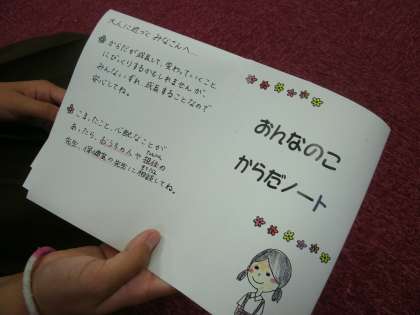 大人に近づくみなさんへ
からだが成長して、変わっていくこと
にびっくりするかもしれませんが、
みんないずれ成長することなので
安心してね。
こまったこと、心配なことが
あったら、おうちの人や担任の
先生、保健室の先生に相談してね。
おんなのこ
からだノート